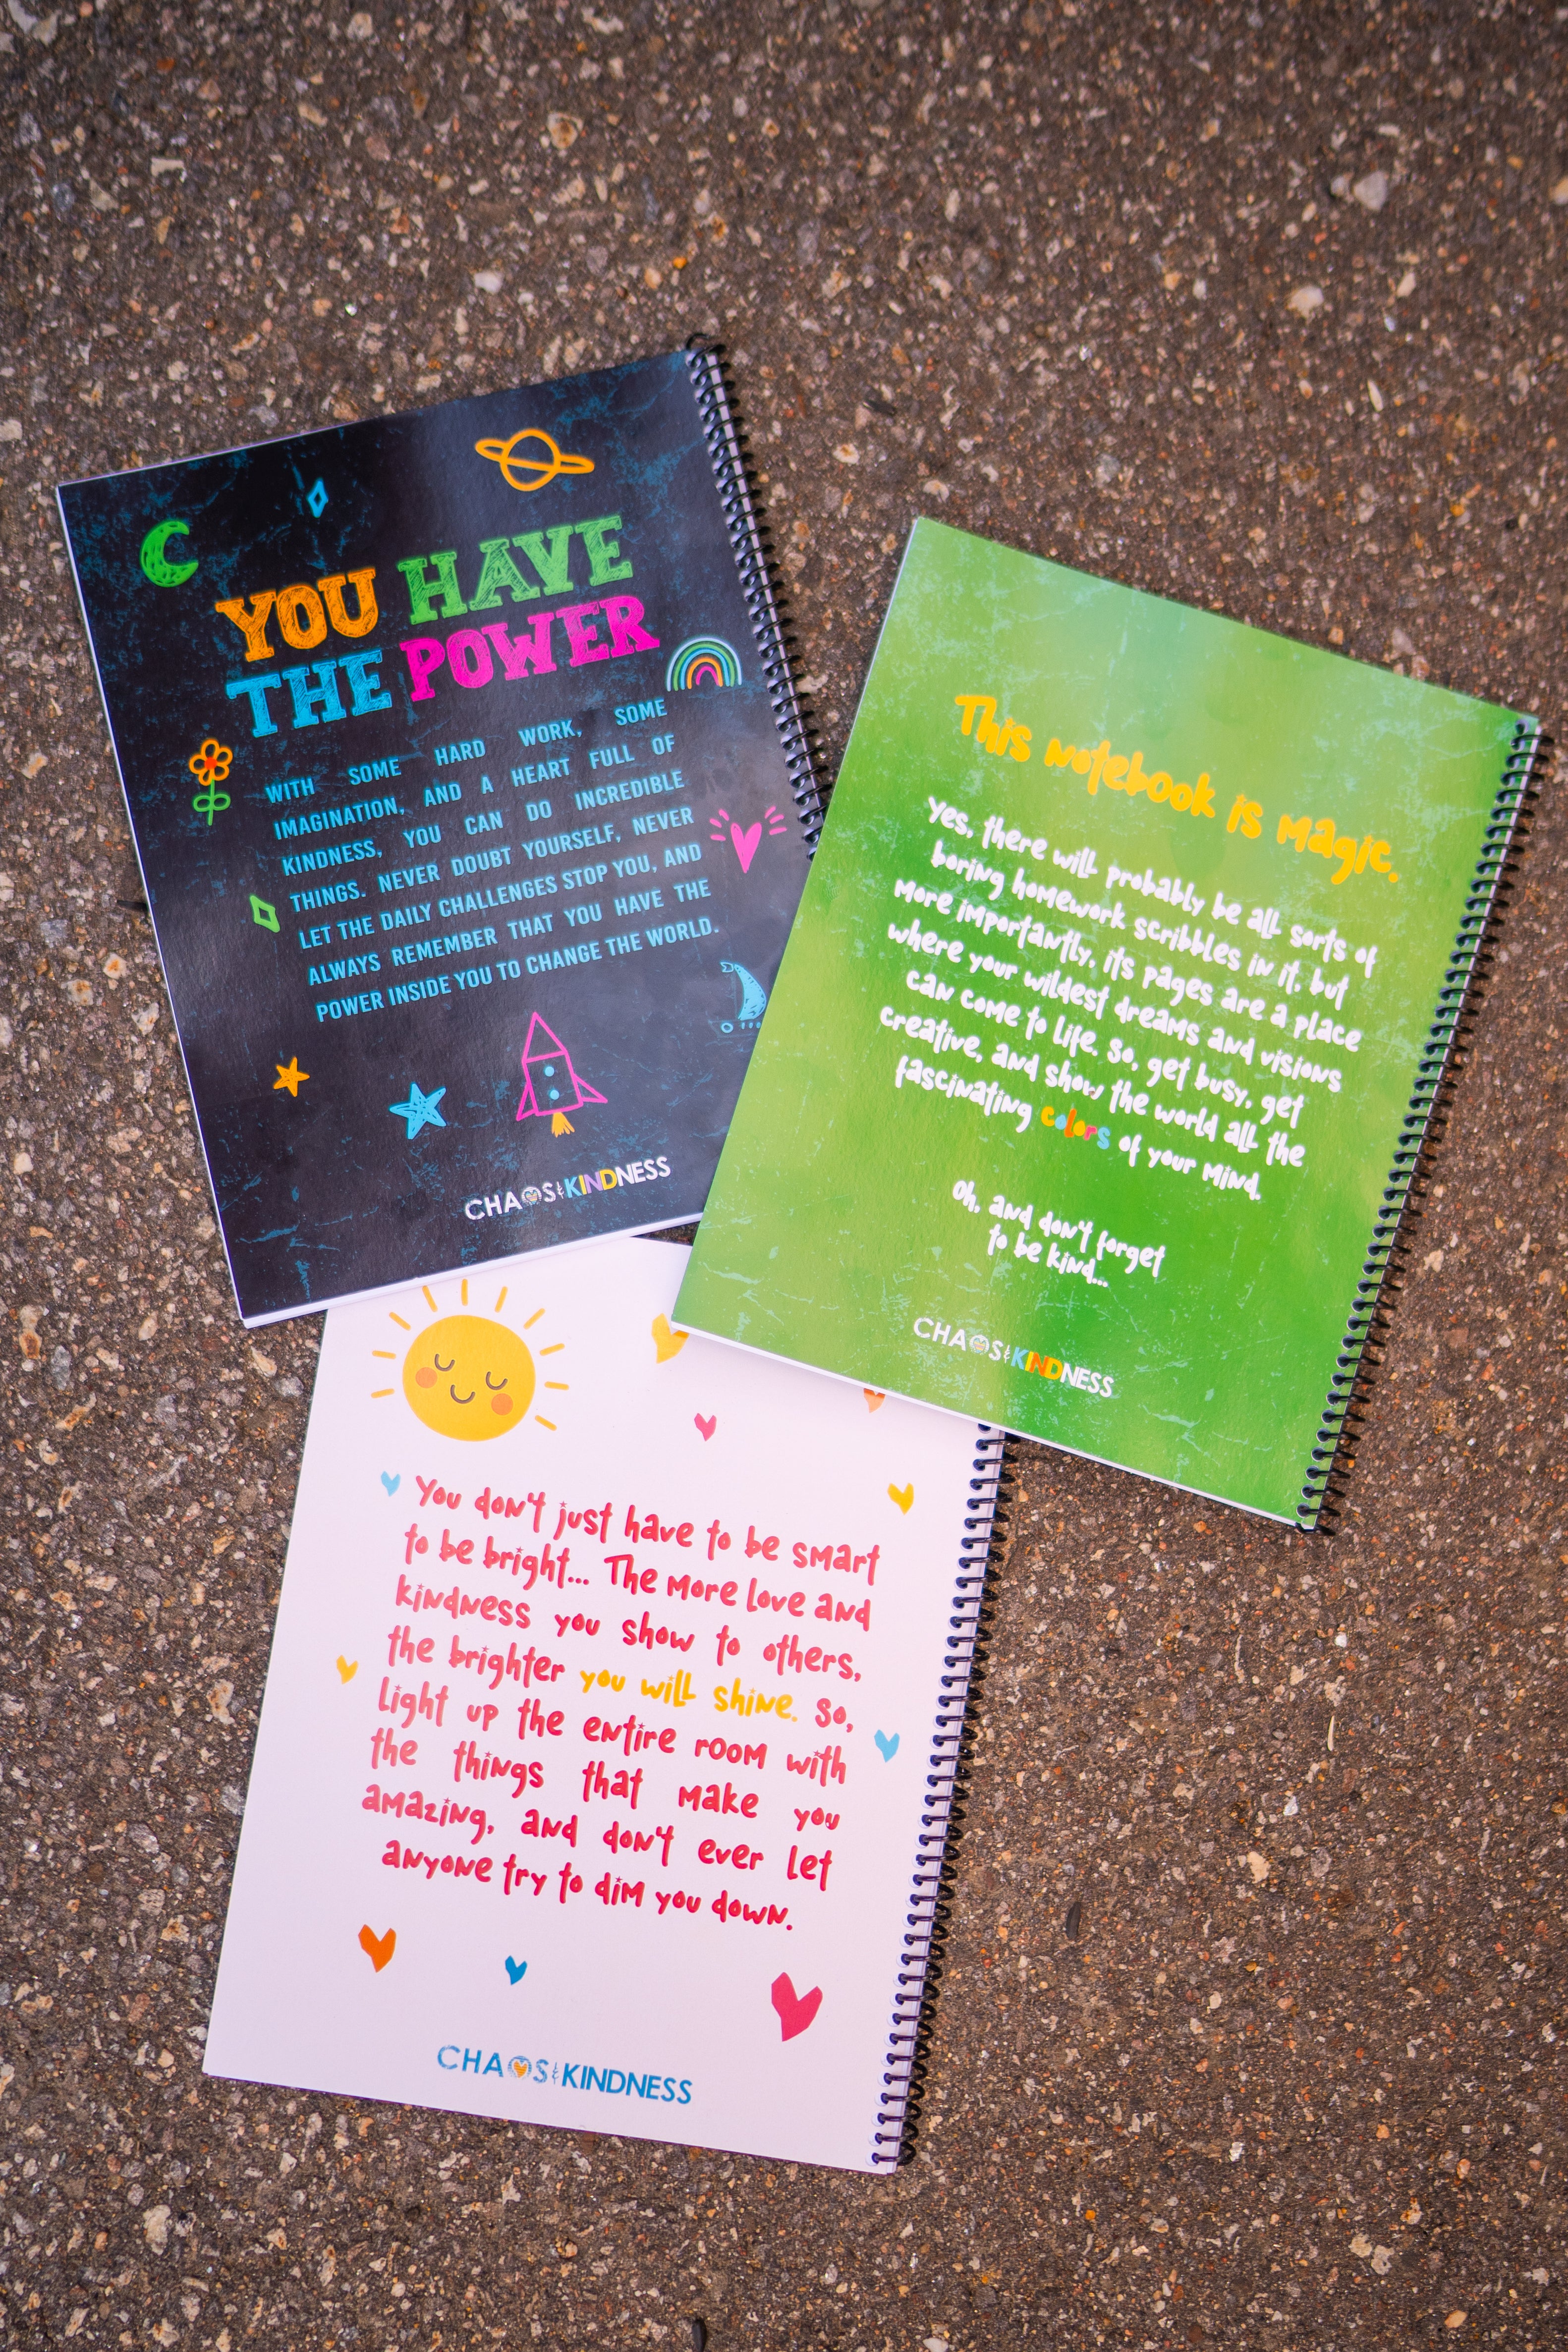 YOU HAVE
THE POWER
WITH SOME HARD WORK, SOME
IMAGINATION, AND A HEART FULL OF
KINDNESS, YOU CAN DO INCREDIBLE
THINGS. NEVER DOUBT YOURSELF, NEVER
LET THE DAILY CHALLENGES STOP YOU, AND
ALWAYS REMEMBER THAT YOU HAVE THE
POWER INSIDE YOU TO CHANGE THE WORLD.
CHAOS & KINDNESS
This notebook is magic.
Yes, there will probably be all sorts of
boring homework scribbles in it, but
more importantly, its pages are a place
where your wildest dreams and visions
can come to life. So, get busy, get
creative, and show the world all the
fascinating colors of your mind.
Oh, and don't forget
to be kind...
CHAOS & KINDNESS
You don't just have to be smart
to be bright... The more love and
kindness you show to others,
the brighter you will shine. So,
light up the entire room with
the things that make you
amazing, and don't ever let
anyone try to dim you down.
CHAOS & KINDNESS